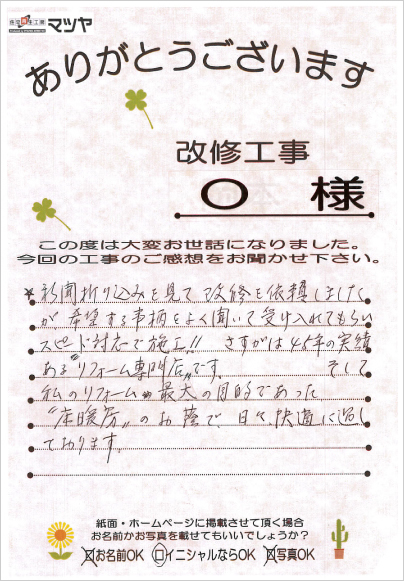 マツヤ
ありがとうございます
改修工事
O 様
この度は大変お世話になりました。
今回の工事のご感想をお聞かせ下さい。
★新聞折り込みを見て改修を依頼しました
が希望する事柄をよく聞いて受け入れてもらい
スピード対応で施工!! さすがは45年の実績
ある"リフォーム専門店"です。 そして
私のリフォーム 最大の目的であった
"床暖房"のお蔭で、日々、快適に過し
ております。
紙面・ホームページに掲載させて頂く場合
お名前かお写真を載せてもいいでしょうか?
お名前OK イニシャルならOK 写真OK